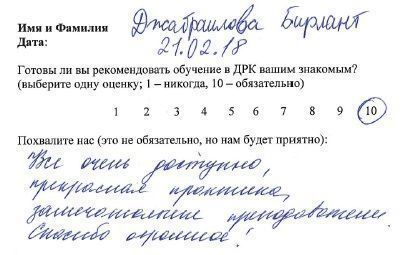 Имя и Фамилия Джабраилова Бирлант
Дата: 21.02.18
Готовы ли вы рекомендовать обучение в ДРК вашим знакомым?
(выберите одну оценку; 1 – никогда, 10 – обязательно)
1 2 3 4 5 6 7 8 9 10
Похвалите нас (это не обязательно, но нам будет приятно):
Все очень доступно,
прекрасная практика,
замечательные преподаватели
Спасибо огромное!